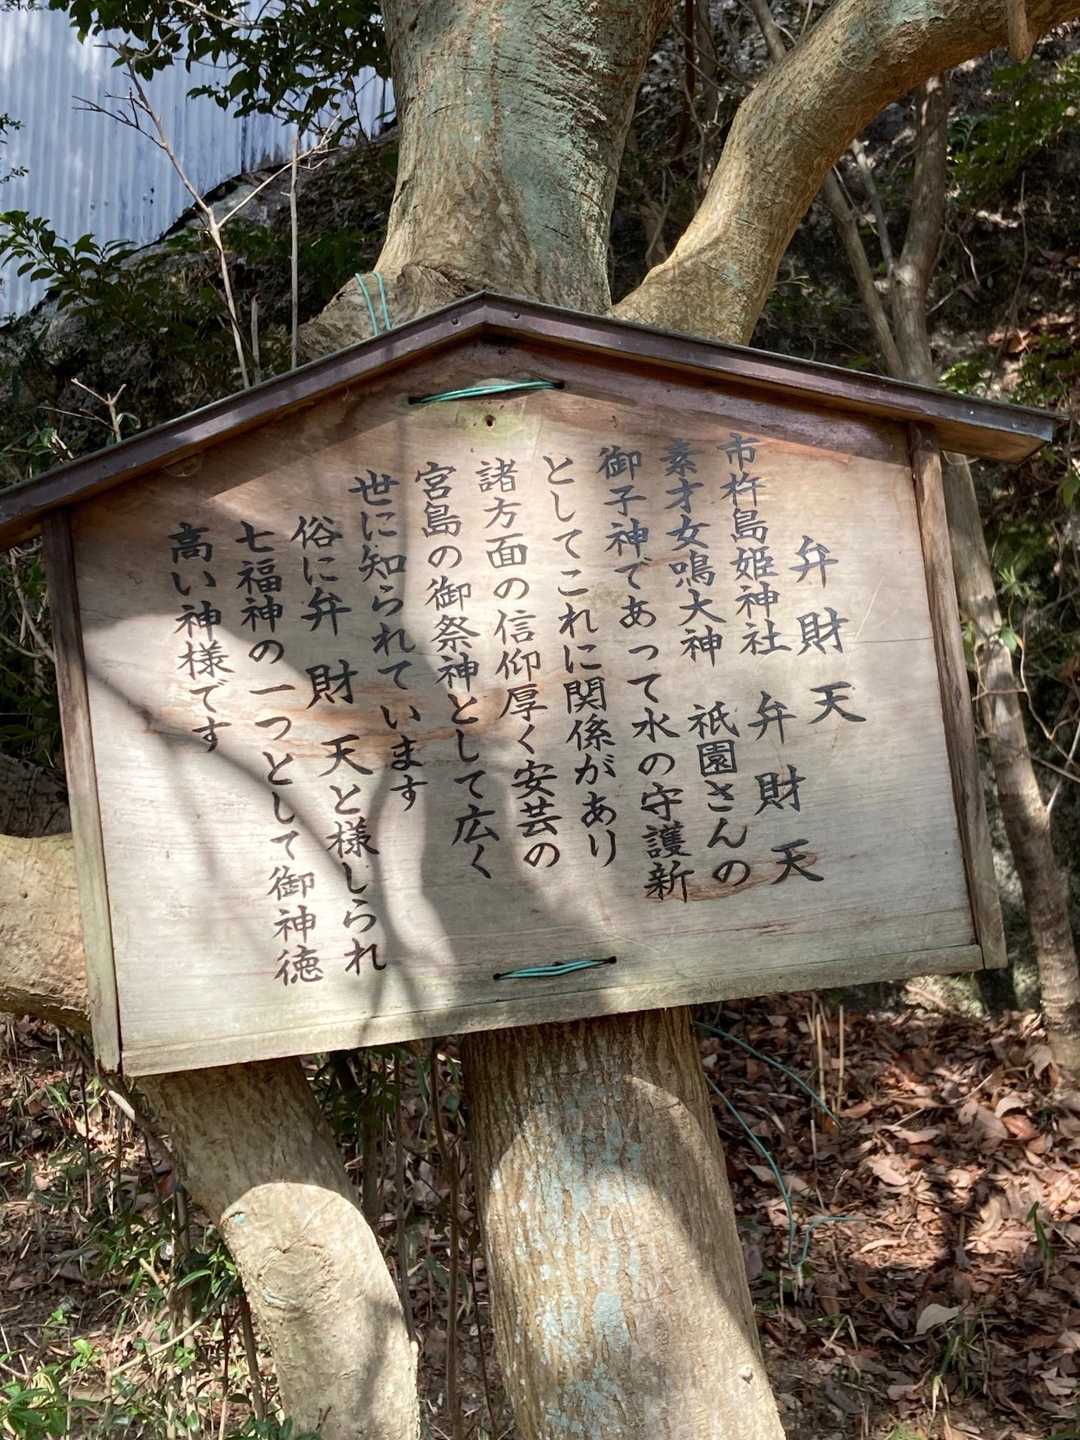 弁財天
市杵島姫神社 弁財天
素才女鳴大神 祇園さんの
御子神であって水の守護新
としてこれに関係があり
諸方面の信仰厚く安芸の
宮島の御祭神として広く
世に知られています
俗に弁財天と様しられ
七福神の一つとして御神徳
高い神様です